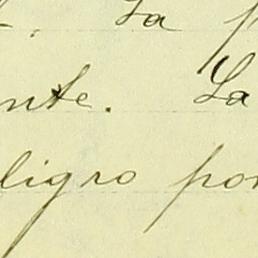 . La p
nte. La
ligro por